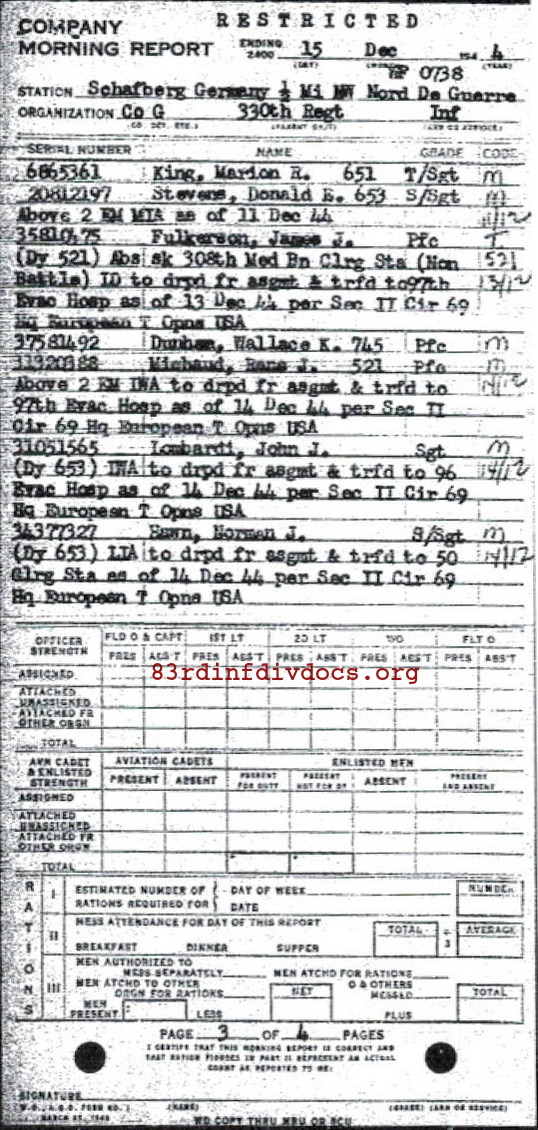 RESTRICTED
COMPANY
MORNING REPORT ENDING 2400 15 Dec 194 4
(DAY) (YEAR)
0738
STATION Schafberg Germany ½ Mi NW Nord De Guerre
ORGANIZATION Co G 330th Regt Inf
SERIAL NUMBER NAME GRADE CODE
6865361 King, Marion R. 651 T/Sgt M
20812197 Stevens, Donald E. 653 S/Sgt M
Above 2 EM MIA as of 11 Dec 44 11/12
35810475 Fulkerson, James J. Pfc T
(Dy 521) Abs sk 308th Med Bn Clrg Sta (Non 521
Battle) LD to drpd fr asgmt & trfd to 97th 13/12
Evac Hosp as of 13 Dec 44 per Sec II Cir 69
Hq European T Opns USA
37581492 Dunham, Wallace K. 745 Pfc M
31320388 Michaud, Rene J. 521 Pfc M
Above 2 EM IWA to drpd fr asgmt & trfd to 14/12
97th Evac Hosp as of 14 Dec 44 per Sec II
Cir 69 Hq European T Opns USA
31051565 Lombardi, John J. Sgt M
(Dy 653) IWA to drpd fr asgmt & trfd to 96 14/12
Evac Hosp as of 14 Dec 44 per Sec II Cir 69
Hq European T Opns USA
34377327 Norman J. S/Sgt M
(Dy 653) LIA to drpd fr asgmt & trfd to 50 14/12
Clrg Sta as of 14 Dec 44 per Sec II Cir 69
Hq European T Opns USA
OFFICER STRENGTH FLD O & CAPT 1ST LT 2D LT WO FLT O
PRES ABS'T PRES ABS'T PRES ABS'T PRES ABS'T PRES ABS'T
ASSIGNED
83rdinfdivdocs.org
ATTACHED UNASSIGNED
ATTACHED FR OTHER ORGN
TOTAL
AVN CADET & ENLISTED STRENGTH AVIATION CADETS ENLISTED MEN
PRESENT ABSENT PRESENT FOR DUTY PRESENT NOT FOR DY ABSENT PRESENT AND ABSENT
ASSIGNED
ATTACHED UNASSIGNED
ATTACHED FR OTHER ORGN
TOTAL
RATIONS
I ESTIMATED NUMBER OF DAY OF WEEK NUMBER
RATIONS REQUIRED FOR DATE
II MESS ATTENDANCE FOR DAY OF THIS REPORT TOTAL ÷ 3 AVERAGE
BREAKFAST DINNER SUPPER
III MEN AUTHORIZED TO MESS SEPARATELY MEN ATCHD FOR RATIONS
MEN ATCHD TO OTHER ORGN FOR RATIONS NET O & OTHERS MESSED TOTAL
MEN PRESENT LESS PLUS
PAGE 3 OF 4 PAGES
I CERTIFY THAT THIS MORNING REPORT IS CORRECT AND
THAT RATION FIGURES IN PART II REPRESENT AN ACTUAL
COUNT AS REPORTED TO ME:
SIGNATURE
W.D., A.G.O. FORM NO. 1 (NAME) (GRADE) (ARM OR SERVICE)
WD COPY THRU MRU OR SCU